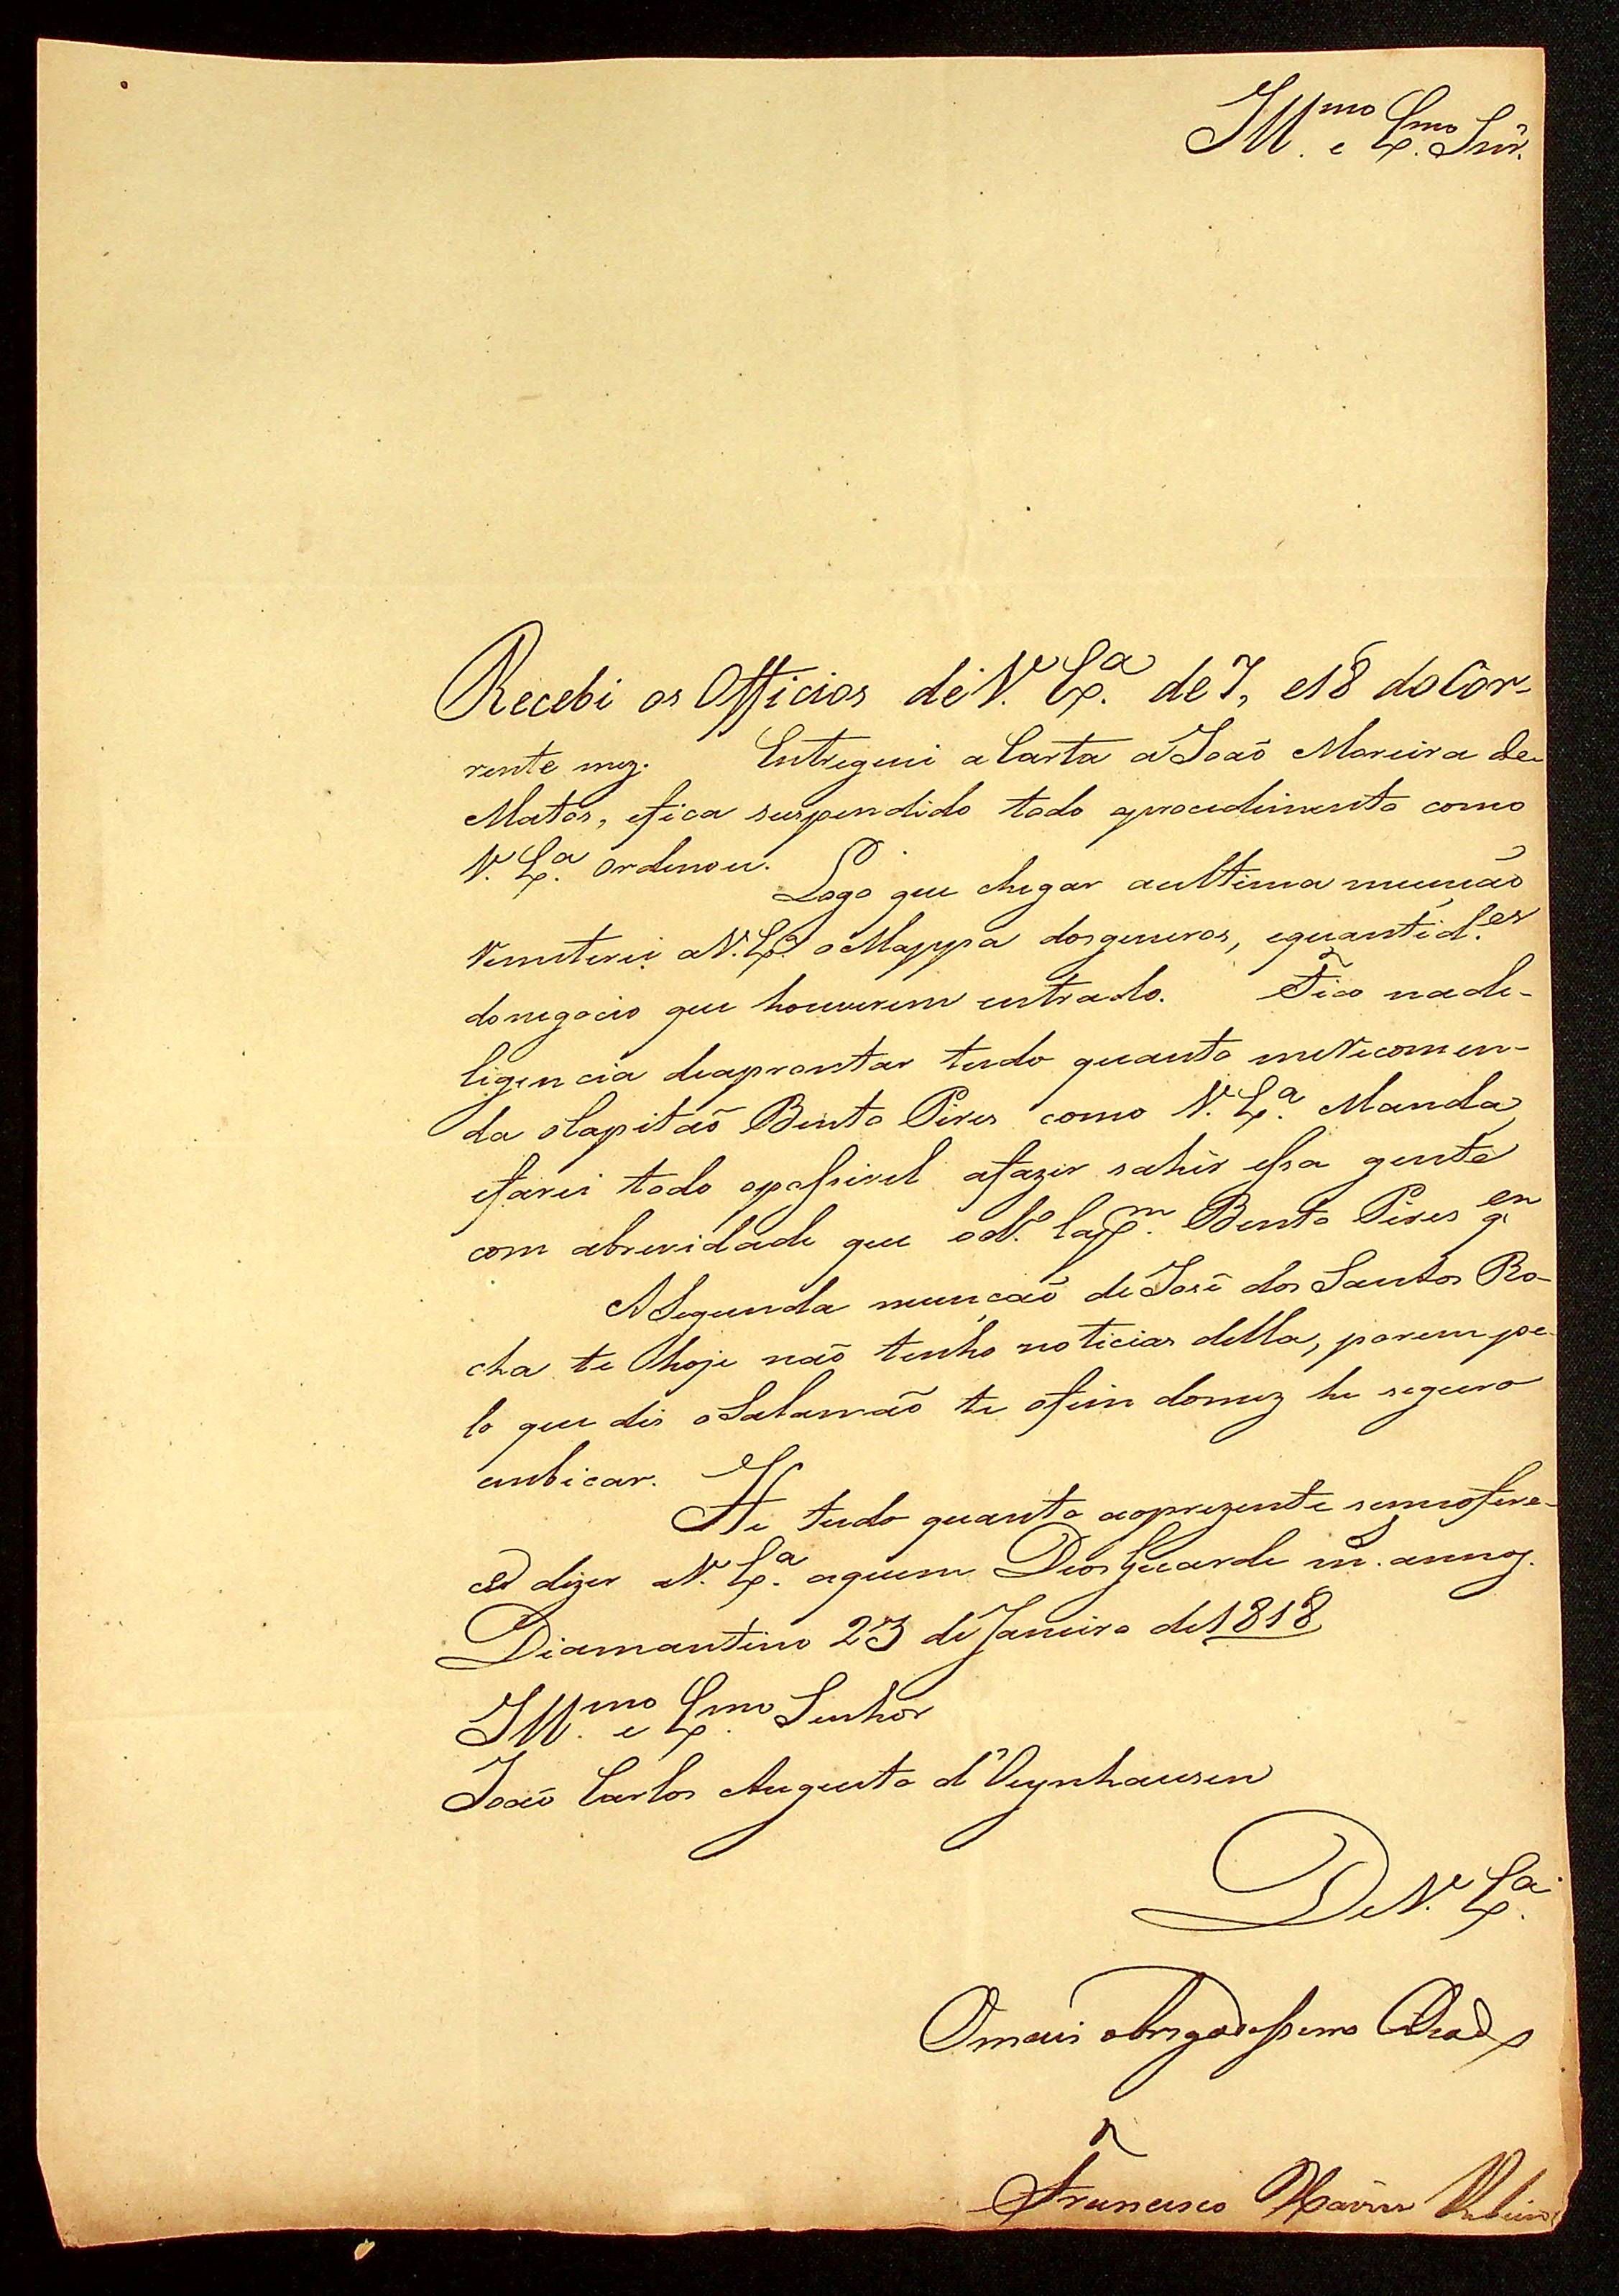 Ill.mo e Ex.mo Snr.
Recebi os Officios de V. Ex.a de 7, e 18 do Cor-
rente mez. Entreguei a Carta a João Moreira de
Matos, efica suspendido todo oprocedimento como
V. Ex.a Ordenou. Logo que chegar aultima munção
remeterei aV. Ex.a oMappa dosgeneros, equantid.es
donegocio que houverem entrado. Fico nade-
ligencia deaprontar tudo quanto merecomen-
da oCapitaõ Bento Pires como V. Ex.a Manda,
efarei todo opossivel afazer sahir essa gente
com abrevidade que od.o Cap.m Bento Pires q.en
ASegunda munçaõ de José dos Santos Ro-
cha te hoje naõ tenho noticias della, porem pe-
lo que dis oSalamaõ te ofim domez he seguro
embicar. He tudo quanto aoprezente semeofere-
ce dizer aV. Ex.a aquem Deos Guarde m. annos.
Diamantino 23 de Janeiro de 1818
Ill.mo e Ex.mo Senhor
João Carlos Augusto d'Oeynhausen
De V. Ex.a
Omais obrigadissimo Criad.o
Francisco Xavier